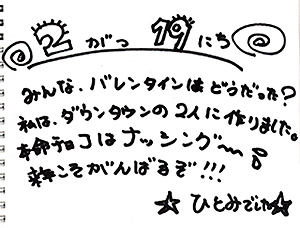 2がつ19にち
みんな、バレンタインはどうだった?
私は、ダウンタウンの2人に作りました。
本命チョコはナッシング〜
来年こそがんばるぞ!!!
☆ひとみでした☆